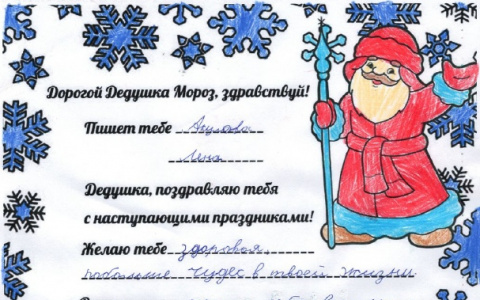 Дорогой Дедушка Мороз, здравствуй!
Пишет тебе
Лена
Дедушка, поздравляю тебя
с наступающими праздниками!
Желаю тебе здоровья,
побольше чудес в твоей жизни